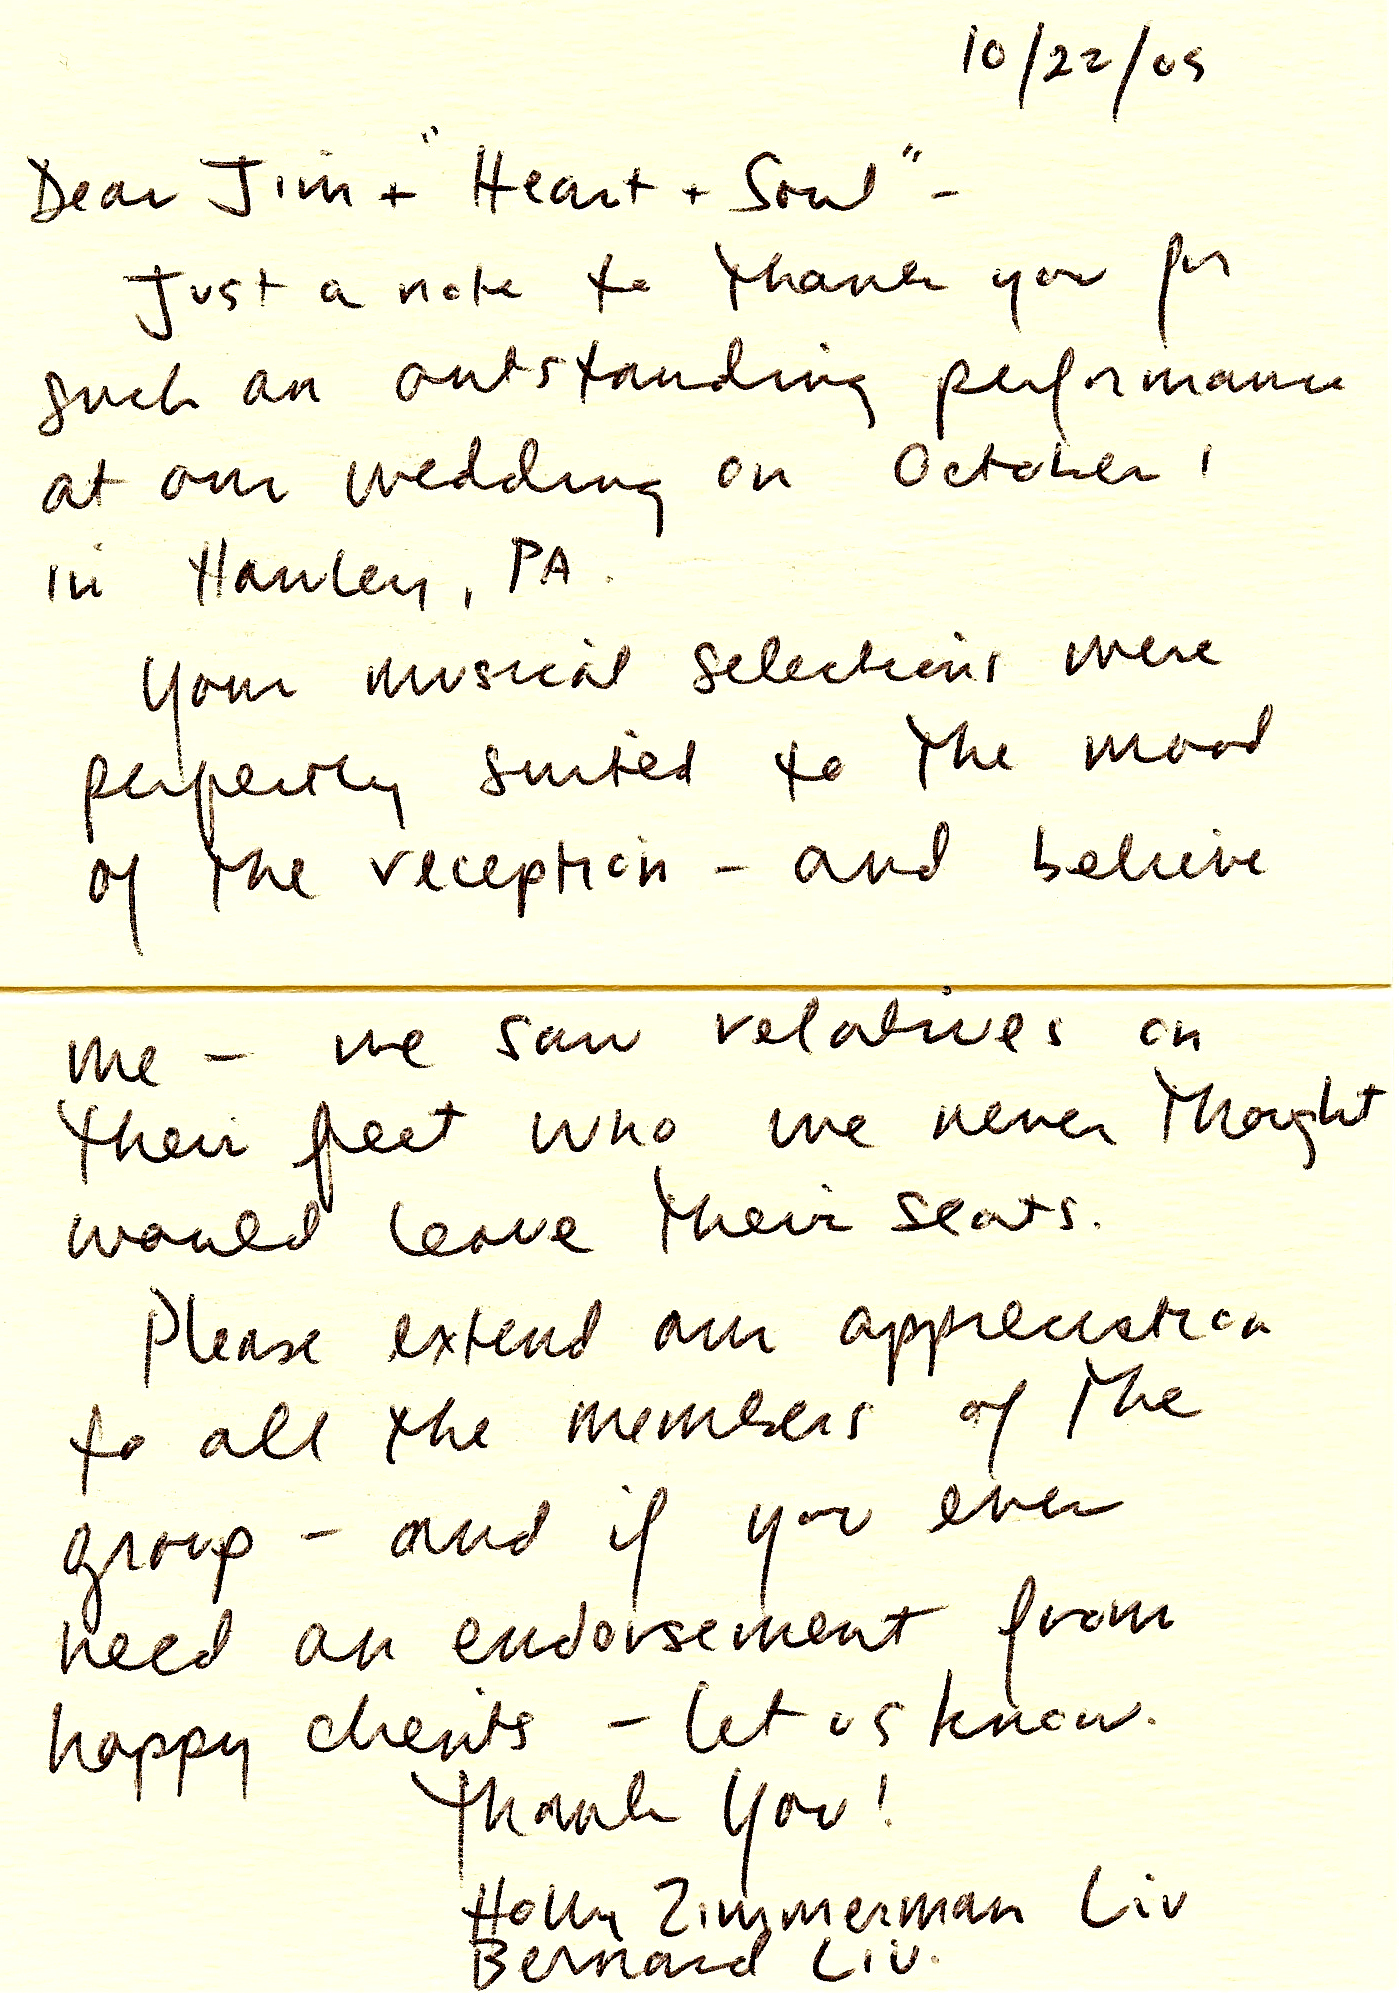 10/22/05
Dear Jim + "Heart + Soul" -
Just a note to thank you for
such an outstanding performance
at our wedding on October 1
in Hawley, PA.
Your musical selections were
perfectly suited to the mood
of the reception - and believe
me - we saw relatives on
their feet who we never thought
would leave their seats.
Please extend our appreciation
to all the members of the
group - and if you ever
need an endorsement from
happy clients - let us know.
Thank you!
Holly Zimmerman Liv
Bernard Liv.